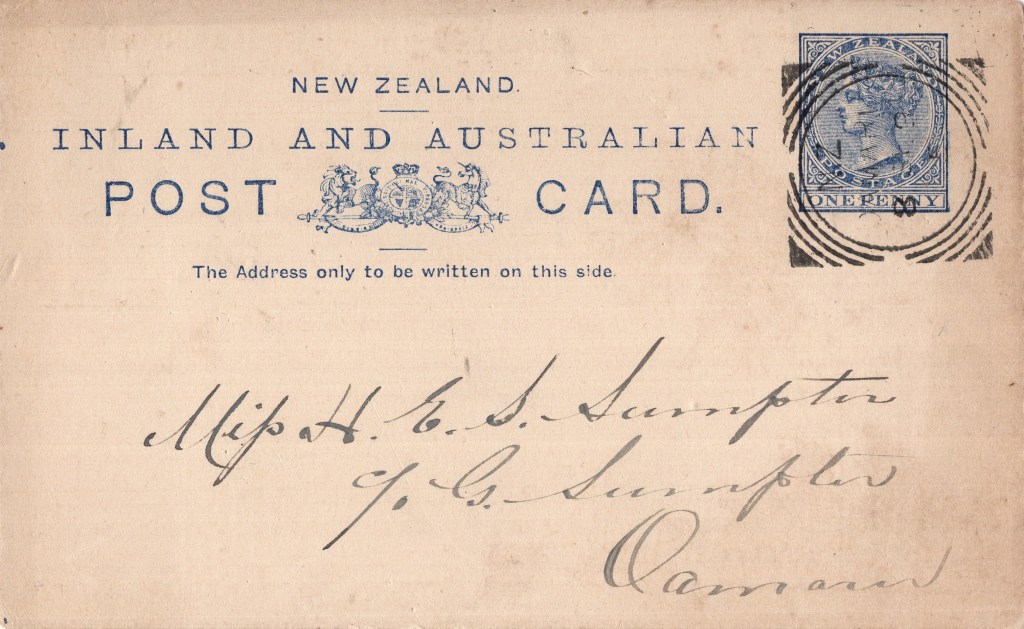 NEW ZEALAND.
INLAND AND AUSTRALIAN
POST CARD.
The Address only to be written on this side.
NEW ZEALAND
POSTAGE
ONE PENNY
Miss H. E. S. Sumpter
c/o G. Sumpter
Oamaru